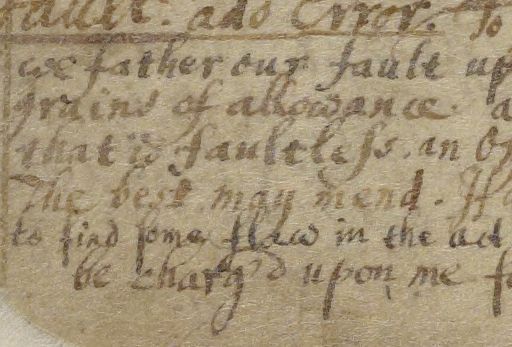 fault. ado Error. To
we father our fault up
grains of allowance. a
that is faultless. an
The best may mend. If
to find some flaw in the act
be charg'd upon me fo